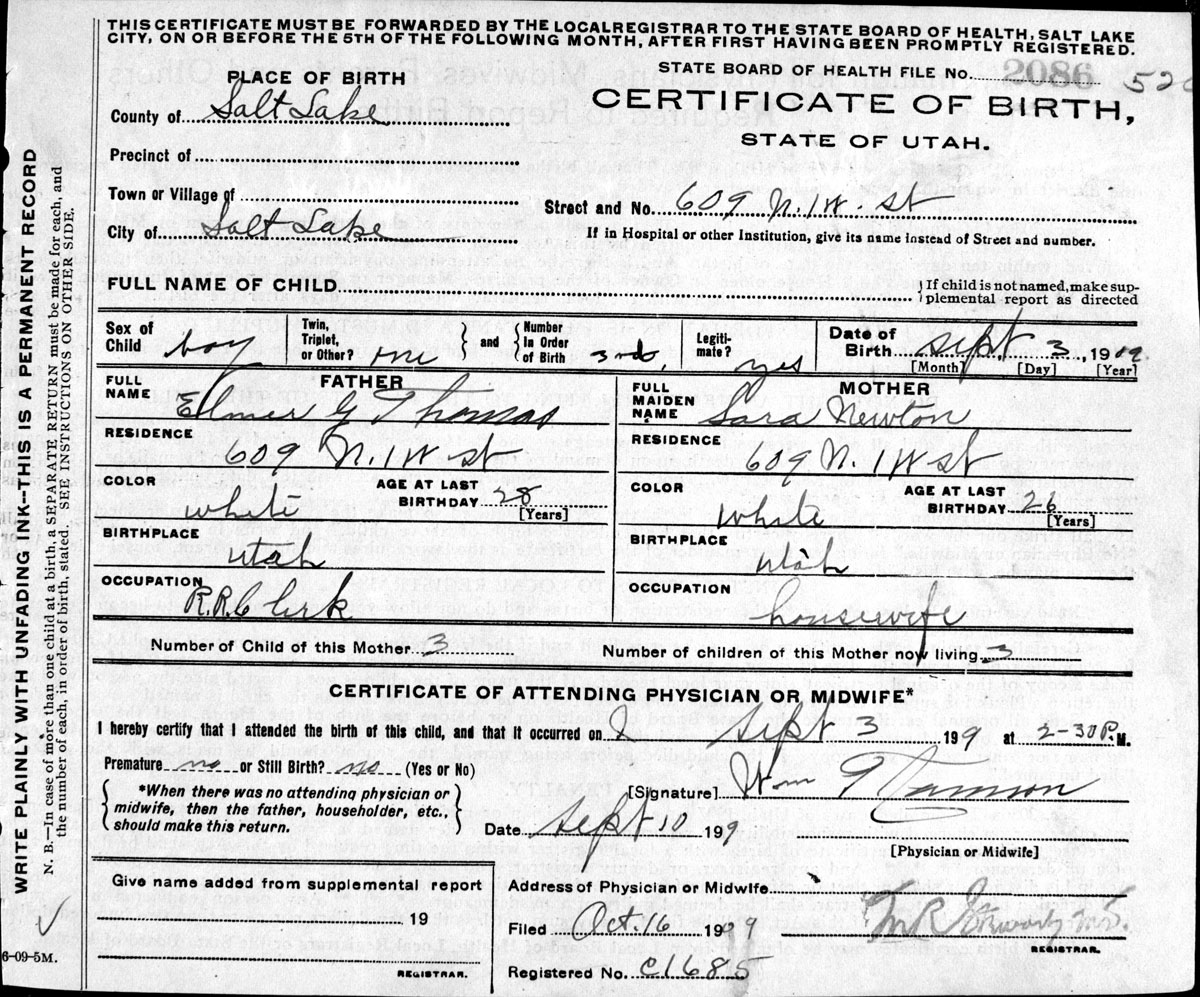 THIS CERTIFICATE MUST BE FORWARDED BY THE LOCAL REGISTRAR TO THE STATE BOARD OF HEALTH, SALT LAKE
CITY, ON OR BEFORE THE 5TH OF THE FOLLOWING MONTH, AFTER FIRST HAVING BEEN PROMPTLY REGISTERED.
STATE BOARD OF HEALTH FILE No. 2086
PLACE OF BIRTH
CERTIFICATE OF BIRTH,
STATE OF UTAH.
County of Salt Lake
Precinct of
Town or Village of
Street and No. 609 N. 1 W. St
City of Salt Lake
If in Hospital or other Institution, give its name instead of Street and number.
FULL NAME OF CHILD
If child is not named, make sup-
plemental report as directed
Sex of Child boy
Twin, Triplet, or Other? one
and
Number In Order of Birth 3rd
Legiti-mate? yes
Date of Birth Sept. 3, 1909.
[Month] [Day] [Year]
FATHER
FULL NAME Elmer G Thomas
RESIDENCE
609 N. 1 W St
COLOR white
AGE AT LAST BIRTHDAY 28
[Years]
BIRTHPLACE
Utah
OCCUPATION
R.R. Clerk
MOTHER
FULL MAIDEN NAME Sara Newton
RESIDENCE
609 N. 1 W St
COLOR white
AGE AT LAST BIRTHDAY 26
[Years]
BIRTHPLACE
Utah
OCCUPATION
housewife
Number of Child of this Mother 3
Number of children of this Mother now living 3
CERTIFICATE OF ATTENDING PHYSICIAN OR MIDWIFE*
I hereby certify that I attended the birth of this child, and that it occurred on Sept 3 199 at 2-30 P.M.
Premature no or Still Birth? no (Yes or No)
*When there was no attending physician or
midwife, then the father, householder, etc.,
should make this return.
[Signature] Wm
Date Sept 10 199
[Physician or Midwife]
Give name added from supplemental report
19
REGISTRAR.
Address of Physician or Midwife
Filed Oct. 16 1909
REGISTRAR.
Registered No. C1685
6-09-5M.
WRITE PLAINLY WITH UNFADING INK--THIS IS A PERMANENT RECORD
N. B.—In case of more than one child at a birth, a SEPARATE RETURN must be made for each, and
the number of each, in order of birth, stated. SEE INSTRUCTIONS ON OTHER SIDE.